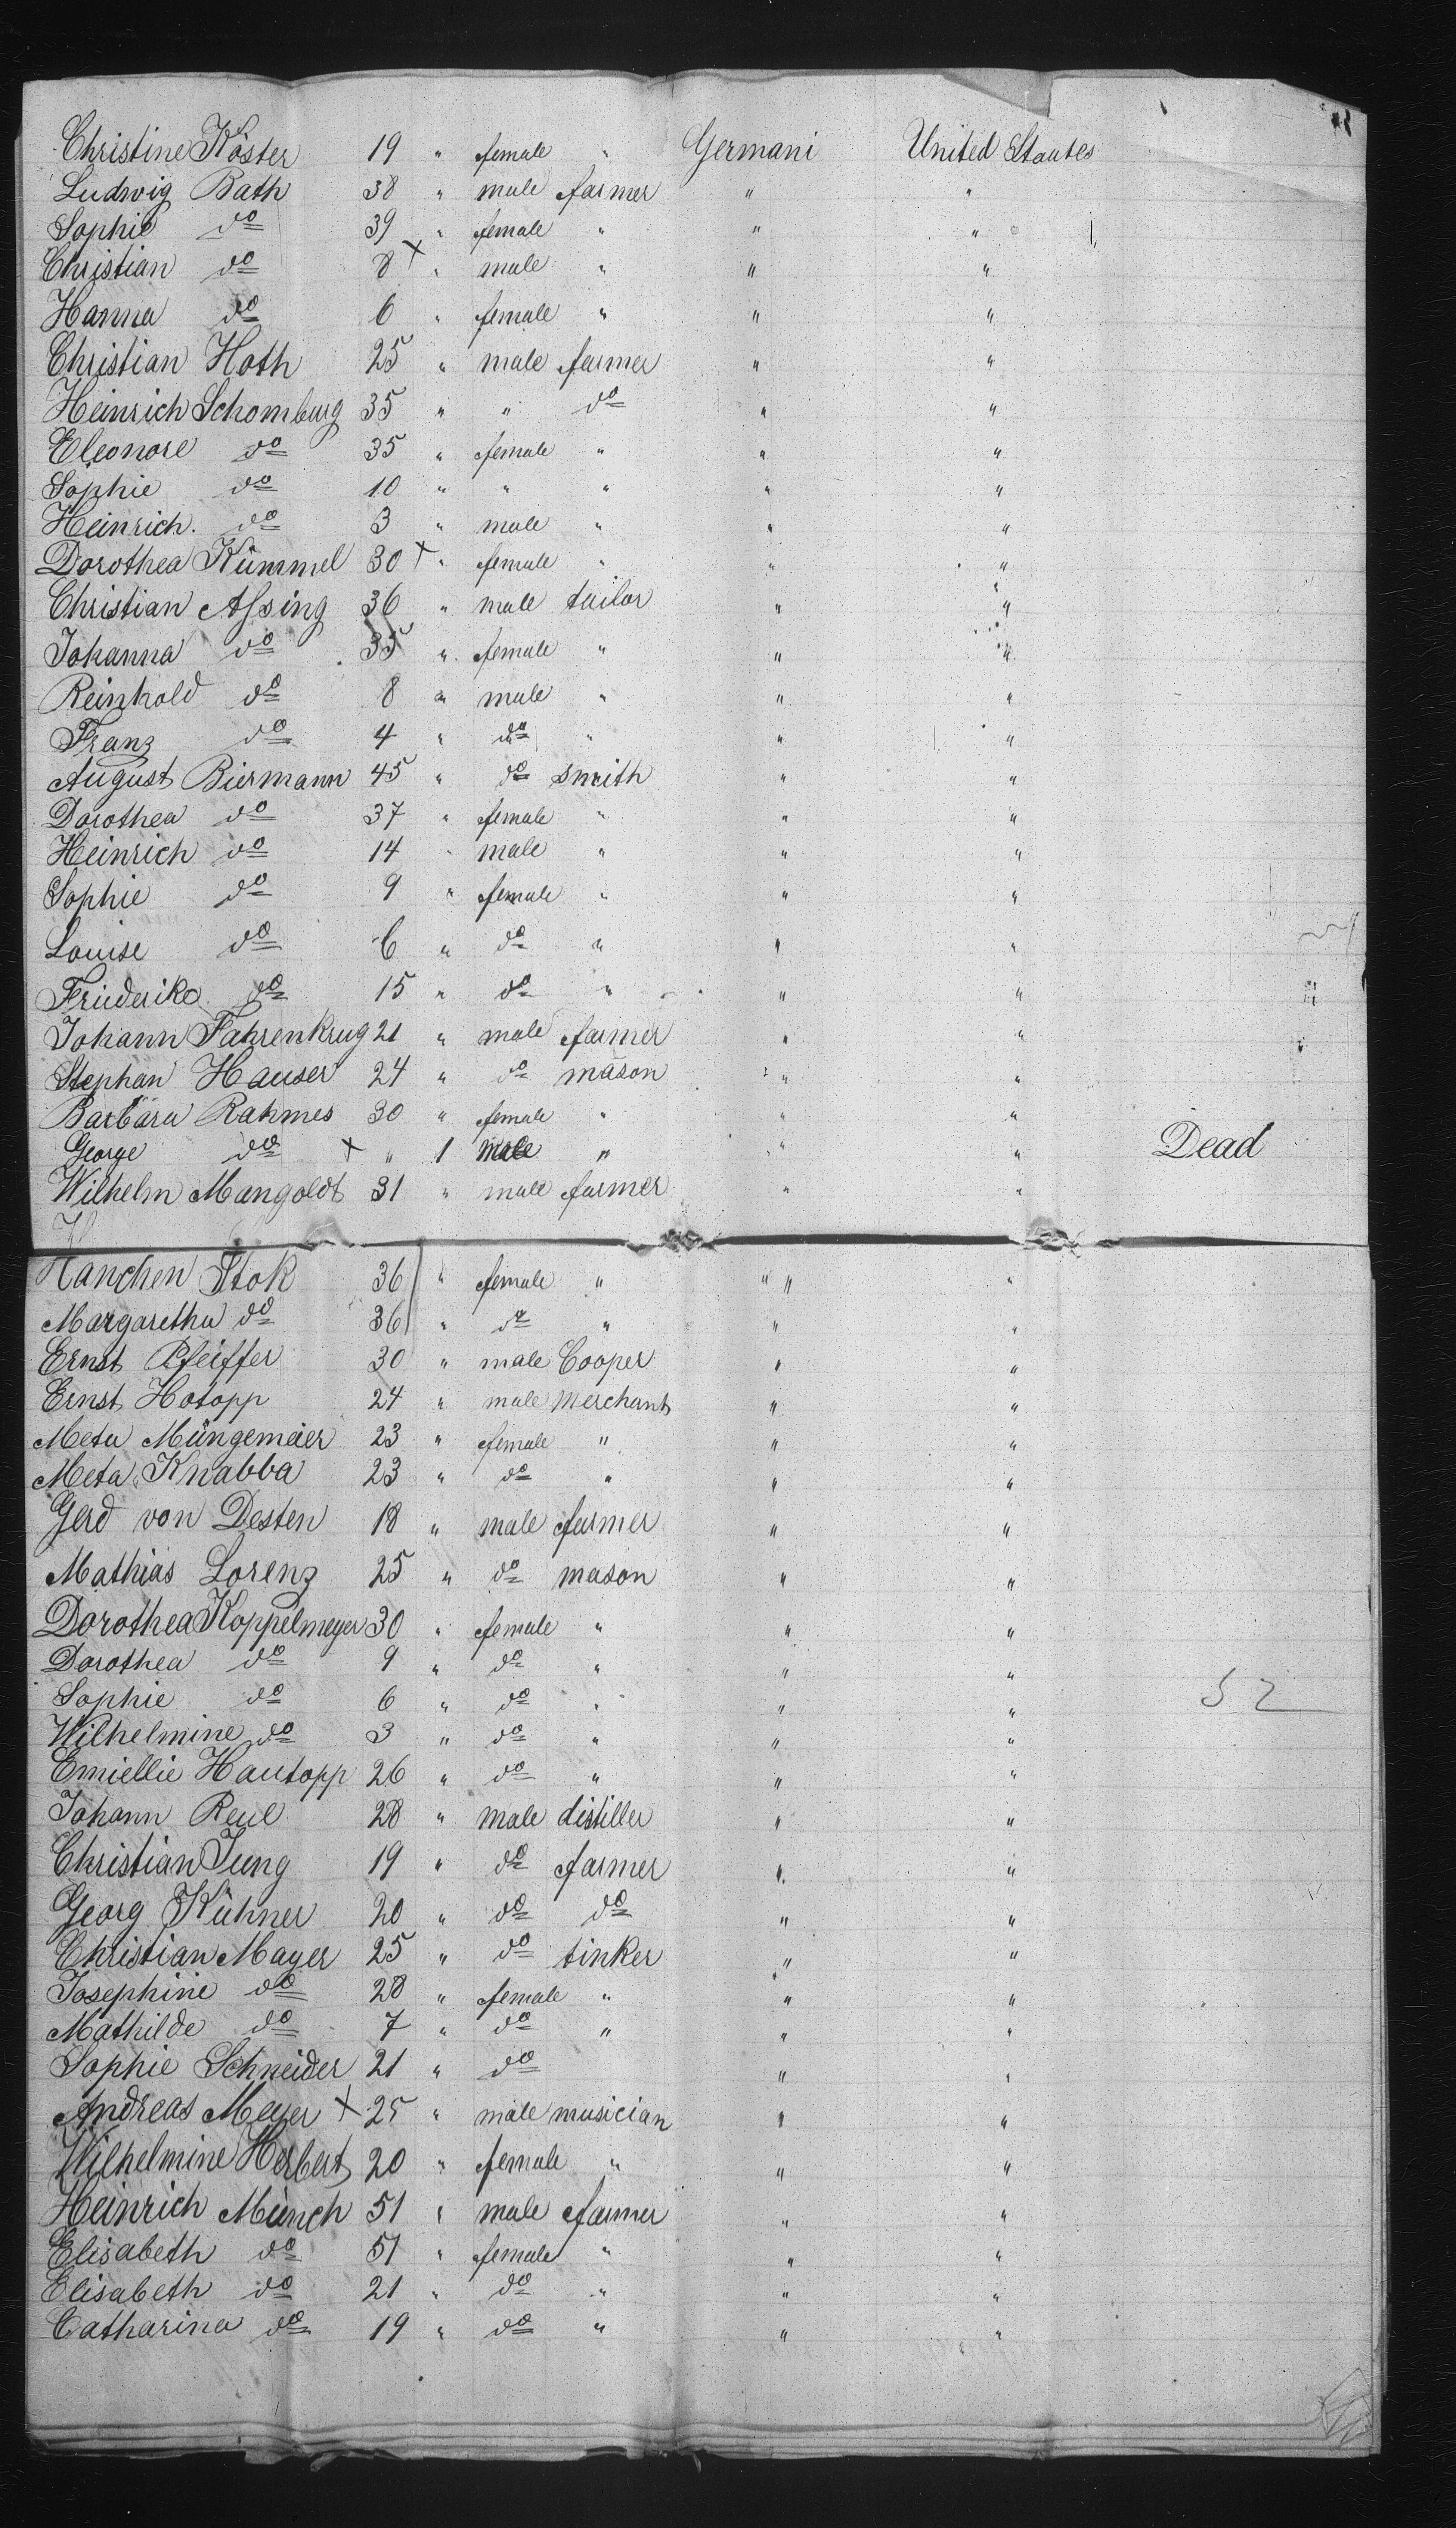 Christine Köster 19 " female " Germani United Stautes
Ludwig Bath 38 " male farmer " "
Sophie do 39 " female " " "
Christian do 8 × " male " " "
Hanna do 6 " female " " "
Christian Hoth 25 " male farmer " "
Heinrich Schomburg 35 " " do " "
Eleonore do 35 " female " " "
Sophie do 10 " " " " "
Heinrich. do 3 " male " " "
Dorothea Kümmel 30 × " female " " "
Christian Assing 36 " male tailor " "
Johanna do 35 " female " " "
Reinhold do 8 " male " " "
Franz do 4 " do " " "
August Biermann 45 " do smith " "
Dorothea do 37 " female " " "
Heinrich do 14 " male " " "
Sophie do 9 " female " " "
Louise do 6 " do " " "
Friederike do 15 " do " " "
Johann Fahrenkrug 21 " male farmer " "
Stephan Hauser 24 " do mason " "
Barbara Rahmes 30 " female " " "
George do × " 1 male " " " Dead
Wilhelm Mangoldt 31 " male farmer " "
Hanchen Stok 36 " female " " " "
Margaretha do 36 " do " " "
Ernst Pfeiffer 30 " male Cooper " "
Ernst Hotopp 24 " male Merchant " "
Meta Müngemeier 23 " female " " "
Meta Knabba 23 " do " " "
Gerd von Desten 18 " male farmer " "
Mathias Lorenz 25 " do mason " "
Dorothea Koppelmeyer 30 " female " " "
Dorothea do 9 " do " " "
Sophie do 6 " do " " " 52
Wilhelmine do 3 " do " " "
Emiellie Hautopp 26 " do " " "
Johann Reul 28 " male distiller " "
Christian Jung 19 " do farmer " "
Georg Kühner 20 " do do " "
Christian Mayer 25 " do tinker " "
Josephine do 28 " female " " "
Mathilde do 7 " do " " "
Sophie Schneider 21 " do " "
Andreas Meyer × 25 " male musician " "
Wilhelmine Herbert 20 " female " " "
Heinrich Münch 51 " male farmer " "
Elisabeth do 51 " female " " "
Elisabeth do 21 " do " " "
Catharina do 19 " do " " "